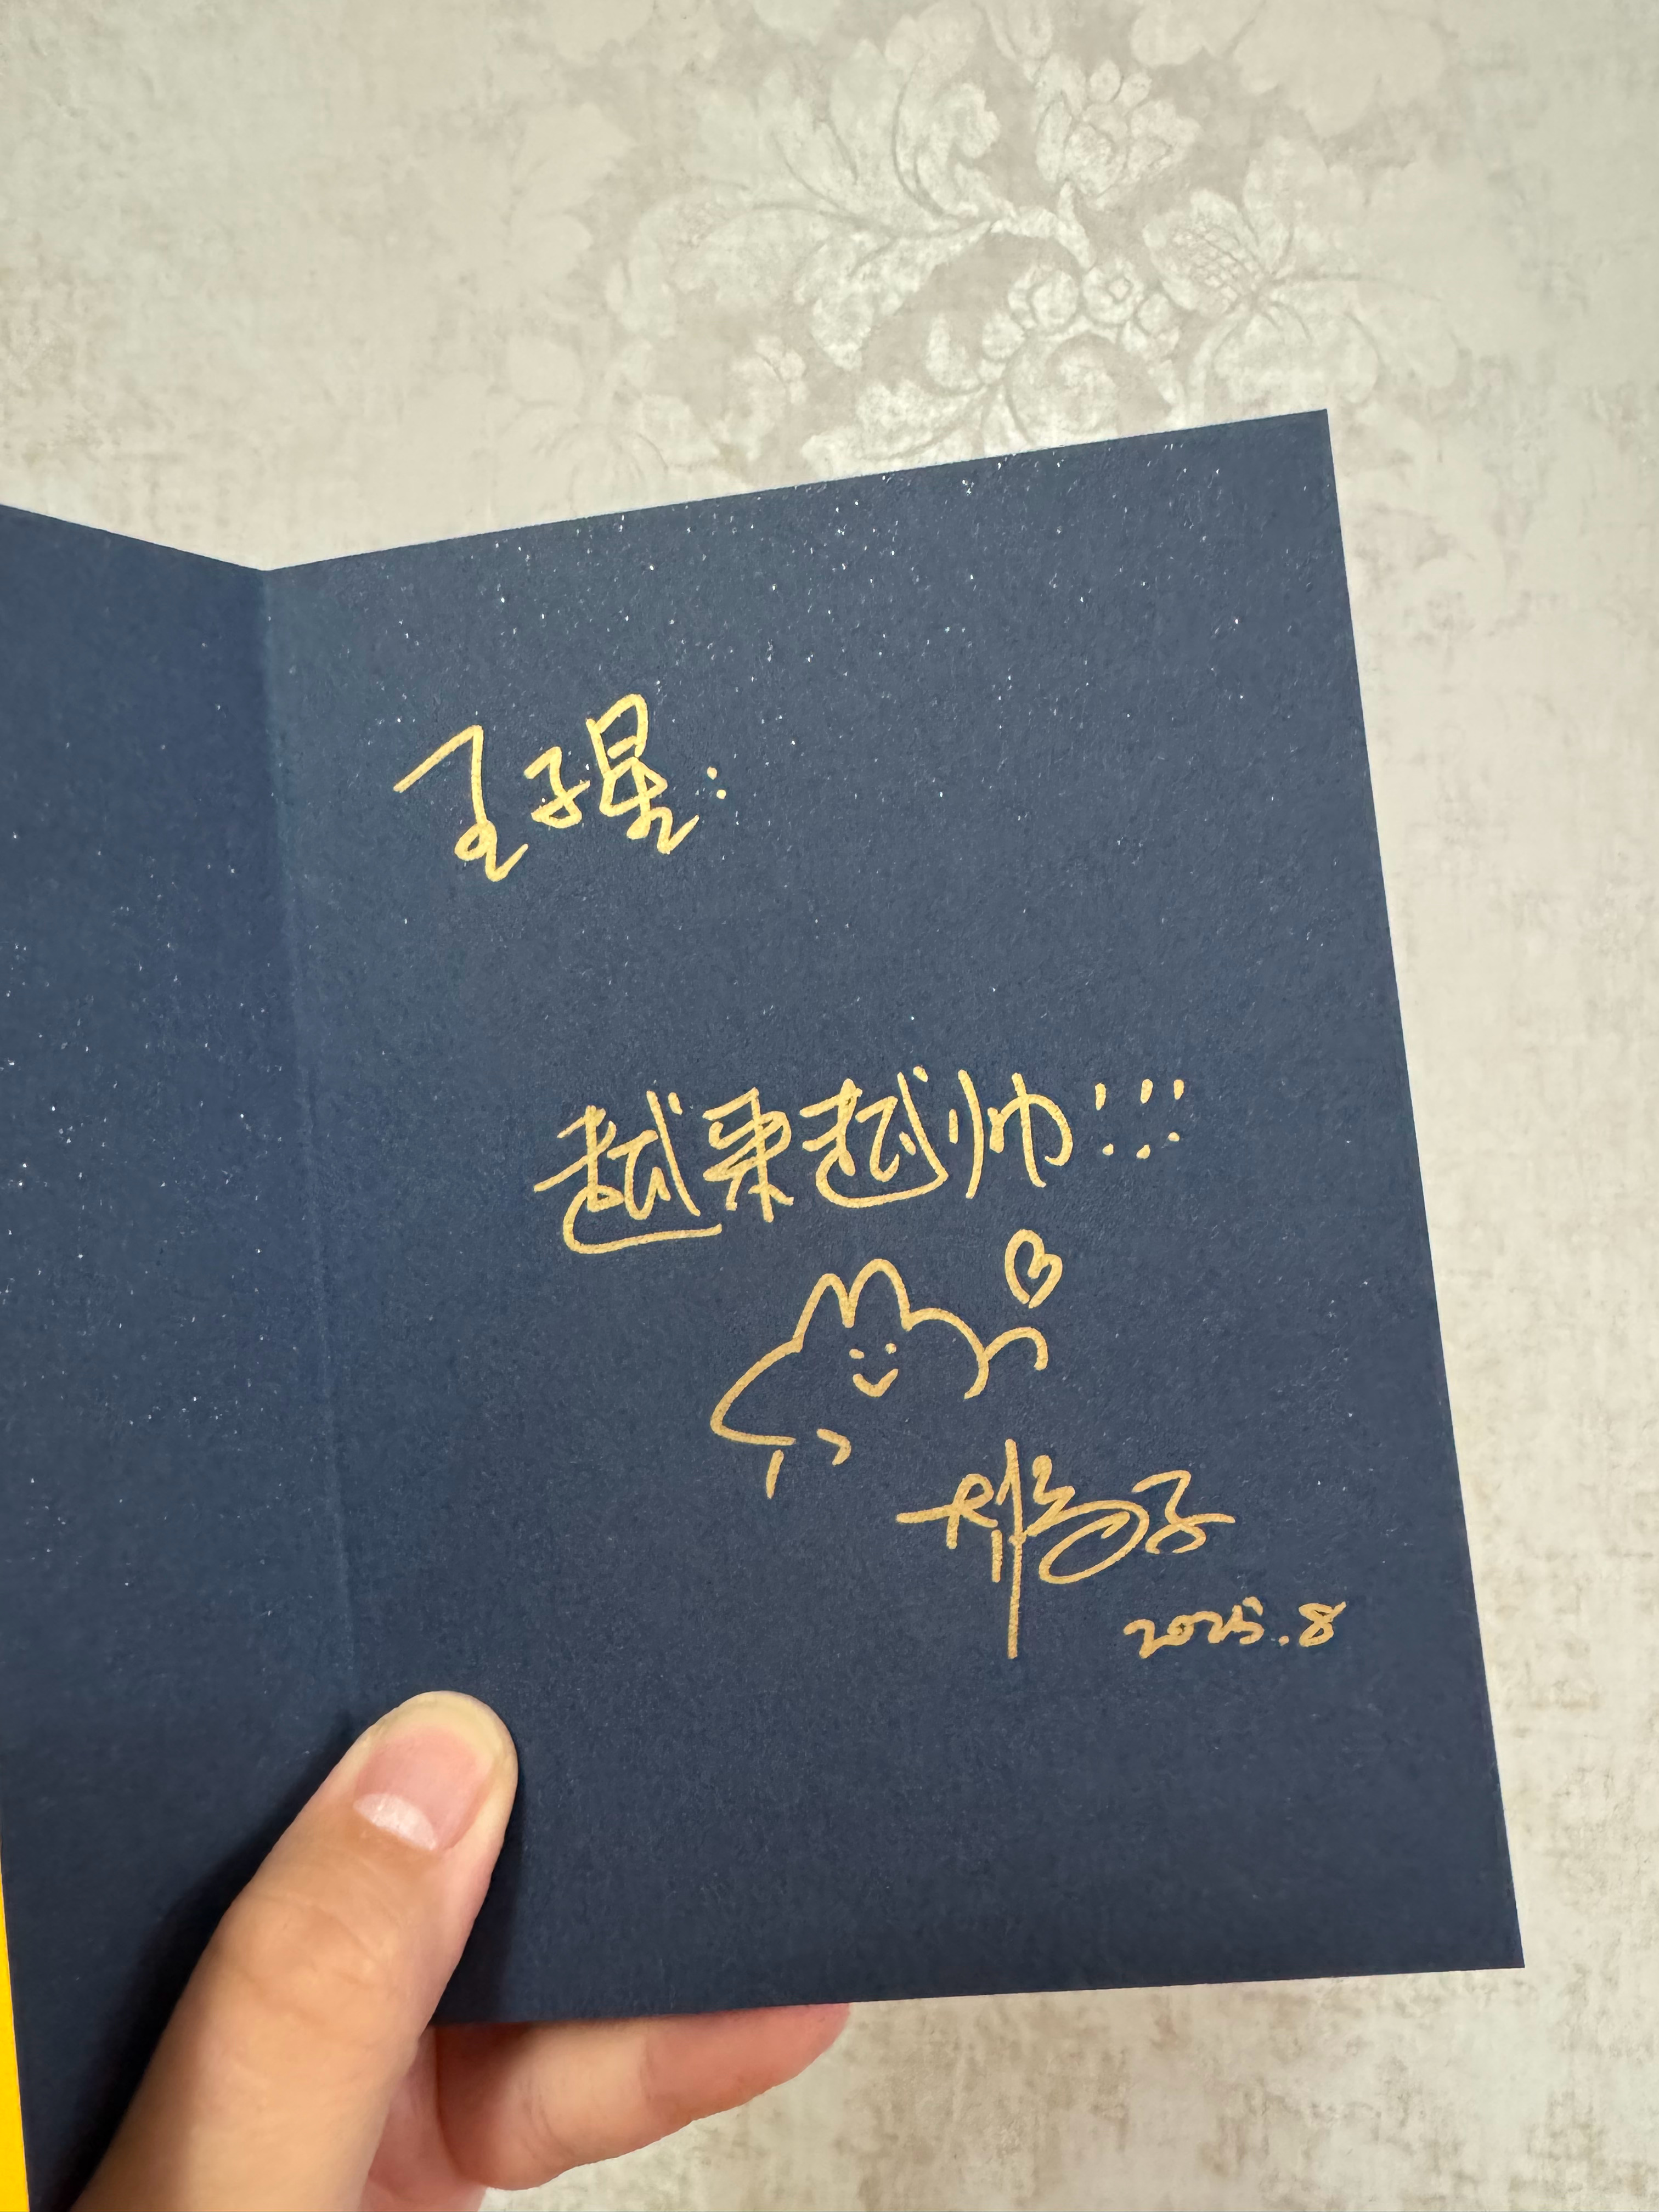 王子星：
越来越帅!!!
2025.8